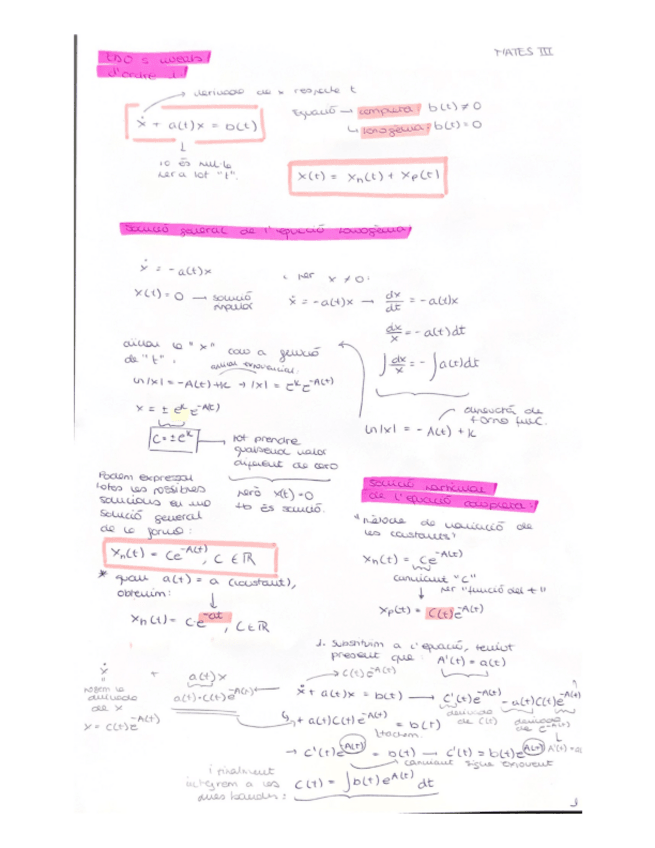 MATES III
EDO's lineals
d'ordre 1
derivada de x respecte t
ẋ + a(t)x = b(t)
Equació → completa: b(t) ≠ 0
↳ homogènia: b(t) = 0
no és nul·la
per a tot "t".
x(t) = xh(t) + xp(t)
Solució general de l'equació homogènia:
ẋ = -a(t)x
x(t) = 0 → solució
particular
, per x ≠ 0:
ẋ = -a(t)x → dx/dt = -a(t)x
dx/x = -a(t)dt
∫ dx/x = -∫ a(t)dt
aïllar la "x" com a funció
de "t".
aplicar exponencial.
ln|x| = -A(t)+K → |x| = e^K e^-A(t)
ln|x| = -A(t) + K
x = ± e^K e^-A(t)
C = ± e^K
pot prendre
qualsevol valor
diferent de zero
però x(t) = 0
tb és solució.
Podem expressar
totes les possibles
solucions en una
solució general
de la forma:
xh(t) = Ce^-A(t), C ∈ ℝ
* quan a(t) = a (constant),
obtenim:
xh(t) = C·e^-at, C ∈ ℝ
Solució particular
de l'equació completa:
* mètode de variació de
les constants:
xh(t) = Ce^-A(t)
canviant "C"
per "funció del t"
xp(t) = C(t)e^-A(t)
1. Substituïm a l'equació, tenint
present que: A'(t) = a(t)
C(t)e^-A(t)
ẋ + a(t)x
a(t)·C(t)e^-A(t)
derivada
de x
x = C(t)e^-A(t)
ẋ + a(t)x = b(t) → C'(t)e^-A(t) - a(t)C(t)e^-A(t)
derivada
de C(t)
derivada
de e^-A(t)
+ a(t)C(t)e^-A(t) = b(t)
→ C'(t)e^-A(t) = b(t) → C'(t) = b(t)e^A(t)
canviant signe exponent
i finalment
integrem a les
dues bandes:
C(t) = ∫ b(t)e^A(t) dt